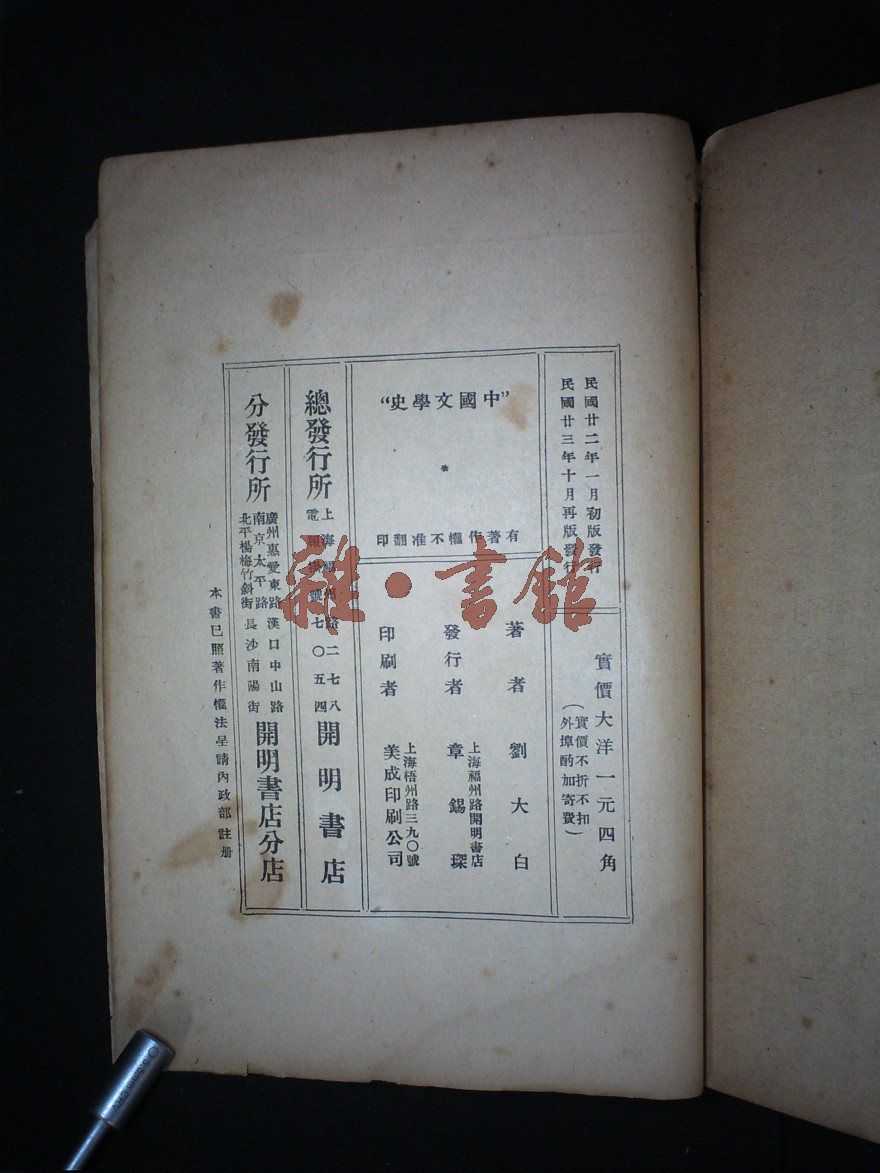 民國廿二年一月初版發行
民國廿三年十月再版發行
實價大洋一元四角
（實價不折不扣
外埠酌加寄費）
"中國文學史"
有著作權不准翻印
著者 劉大白
發行者 上海福州路開明書店
章錫琛
印刷者 上海梧州路三九〇號
美成印刷公司
總發行所 上海福州路二七八
電報掛號七〇五四
開明書店
分發行所
廣州惠愛東路 漢口中山路
南京太平路 長沙南陽街
北平楊梅竹斜街
開明書店分店
本書已照著作權法呈請內政部註冊
雜·書館